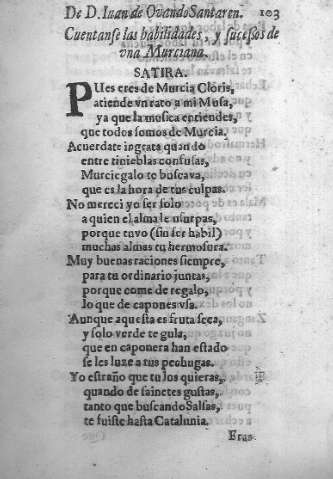 De D. Iuan de Ouando Santaren. 103
Cuentanse las habilidades, y sucessos de
vna Murciana.
SATIRA.
PUes eres de Murcia Cloris,
atiende vn rato a mi Musa,
ya que la mosica entiendes,
que todos somos de Murcia.
Acuerdate ingrata quando
entre tinieblas confusas,
Murciegalo te buscava,
que es la hora de tus culpas.
No mereci yo ser solo
a quien el alma le usurpas,
porque tuvo (sin ser habil)
muchas almas tu hermosura.
Muy buenas raciones siempre,
para tu ordinario juntas,
porque come de regalo,
lo que de capones vsa.
Aunque aquesta es fruta seca,
y solo verde te gula,
que en caponera han estado
se les luze a tus pechugas.
Yo estraño que tu los quieras,
quando de sainetes gustas,
tanto que buscando Salsas,
te fuiste hasta Catalunia.
Eras